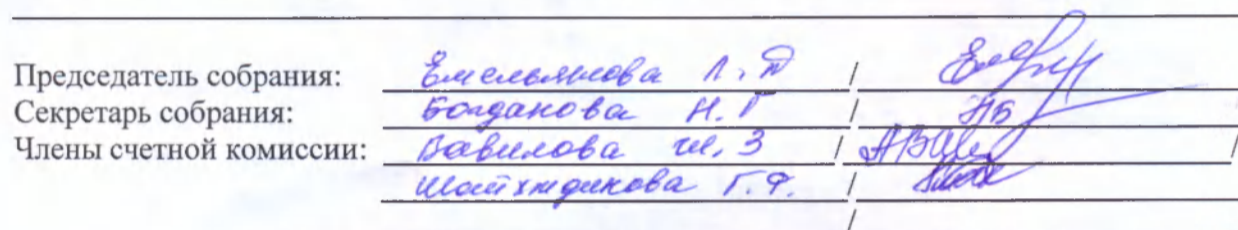 Председатель собрания: Емельянова Л. Д /
Секретарь собрания: Богданова Н. Г / НБ
Члены счетной комиссии: Вавилова З / АВав /
Г.Ф. /
/